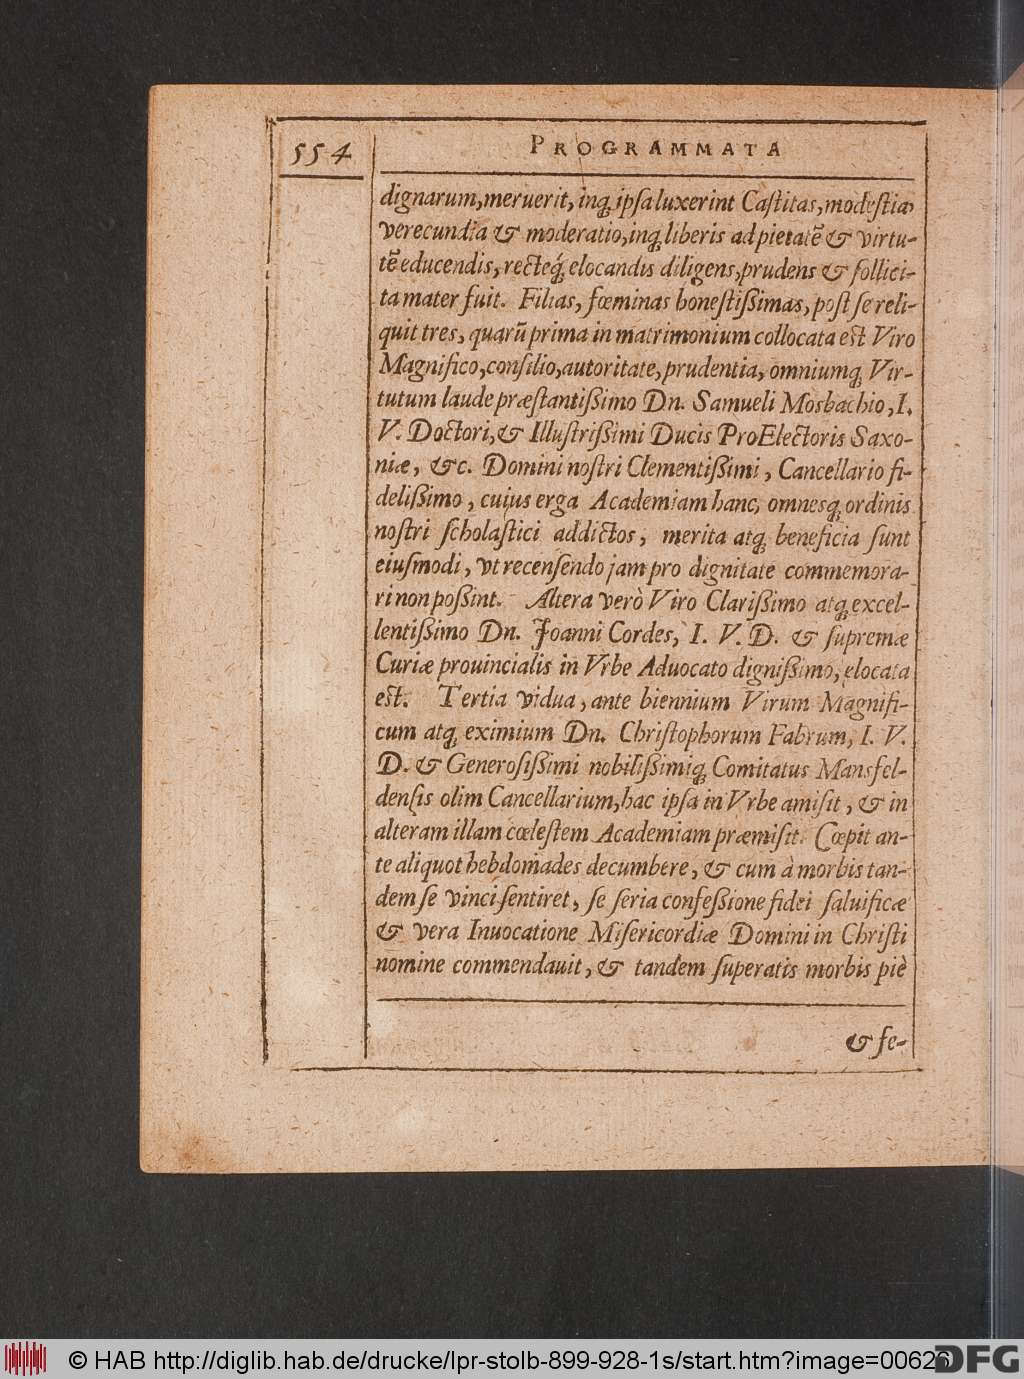 554
PROGRAMMATA
dignarum, meruerit, inq́; ipſa luxerint Caſtitas, modeſtia,
verecundia & moderatio, inq́; liberis ad pietatẽ & virtu-
tẽ educendis, recteq́; elocandis diligens, prudens & ſollici-
ta mater fuit. Filias, fœminas honeſtiſsimas, poſt ſe reli-
quit tres, quarũ prima in matrimonium collocata eſt Viro
Magnifico, conſilio, autoritate, prudentia, omniumq́; Vir-
tutum laude præſtantiſsimo Dn. Samueli Mosbachio, I.
V. Doctori, & Illuſtriſsimi Ducis ProElectoris Saxo-
niæ, &c. Domini noſtri Clementiſsimi, Cancellario fi-
deliſsimo, cuius erga Academiam hanc, omnesq́; ordinis
noſtri ſcholaſtici addictos, merita atq́; beneficia ſunt
eiuſmodi, vt recenſendo jam pro dignitate commemora-
ri non poſsint. Altera verò Viro Clariſsimo atq́; excel-
lentiſsimo Dn. Joanni Cordes, I. V. D. & ſupremæ
Curiæ prouincialis in Vrbe Aduocato digniſsimo, elocata
eſt. Tertia vidua, ante biennium Virum Magnifi-
cum atq́; eximium Dn. Chriſtophorum Fabrum, I. V.
D. & Generoſiſsimi nobiliſsimiq́; Comitatus Mansfel-
denſis olim Cancellarium, hac ipſa in Vrbe amiſit, & in
alteram illam cœleſtem Academiam præmiſit. Cœpit an-
te aliquot hebdomades decumbere, & cum à morbis tan-
dem ſe vinci ſentiret, ſe ſeria confeſsione fidei ſaluificæ
& vera Inuocatione Miſericordiæ Domini in Chriſti
nomine commendauit, & tandem ſuperatis morbis piè
& fe-
© HAB http://diglib.hab.de/drucke/lpr-stolb-899-928-1s/start.htm?image=00626
DFG